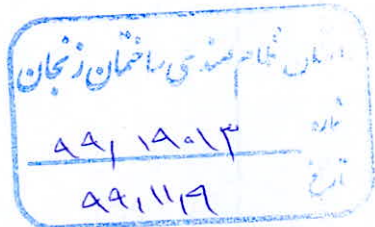 سازمان نظام مهندسی ساختمان زنجان
شماره ۹۹/۱۹۰۱۳
تاریخ ۹۹/۱۱/۹